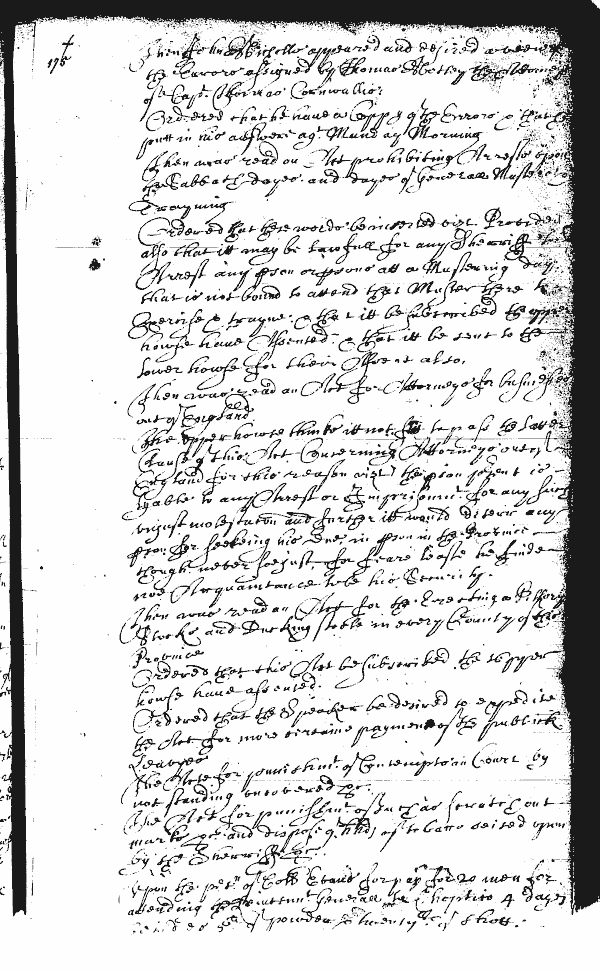 175
Then John Nicholls appeared and desired a
the Errors assigned by Thomas Notley the Attorney
of Capt. Thomas Cornwallis:
Ordered that he have a Coppy of the Errors & that he
putt in his answere agt. Munday Morning
Then was read an Act prohibiting Arrests upon
the Sabbath dayes and dayes of Generall Musters
Trayning
Ordered that these words be inserted vizt. Provided
also that itt may be lawfull for any Sherriff
Arrest any pson or psons att a Mustering day
that is not bound to attend that Muster there to
exercise & trayne. & that itt be subscribed the upper
howse have Assented. & that itt be sent to the
lower howse for their Assent also.
Then was read an Act for Attorneys for businesses
out of England
The upper howse thinks itt not fitt to pass the latter
clause of this Act Concerning Attorneys out of
England for this reason vizt the pson psent is
lyable to any Arrest or Imprisonmt. for any such
unjust molestation and further itt would deterr any
pson for seekeing his due in pson in the Province
though never soe just, for feare least he finde
noe Acquaintance to be his Security.
Then was read an Act for the Erecting a Pillory
Stocks and Ducking stoole in every County of this
Province
Ordered that this Act be subscribed the upper
howse have assented.
Ordered that the Speaker be desired to expedite
the Act for more certaine payment of the publick
Leavyes
The Act for punishmt. of Contempts in Court by
not standing uncovered &c.
The Act for punishmt. of such as scratch out
marks &c. and dispose of hhds of tobacco seized upon
by the Sherriff &c.
Upon the petn. of Coll Evans for pay for 20 men for
attending the Lieutennt. Generall 4 dayes
of powder & twenty of shott.